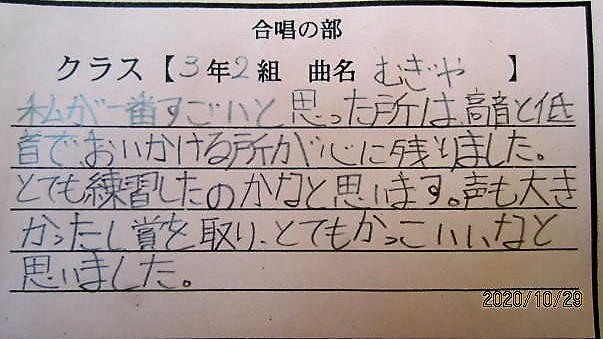 合唱の部
クラス【3年2組 曲名 むぎや 】
私が一番すごいと思った所は、高音と低
音でおいかける所が心に残りました。
とても練習したのかなと思います。声も大き
かったし賞を取り、とてもかっこいいなと
思いました。
2020/10/29